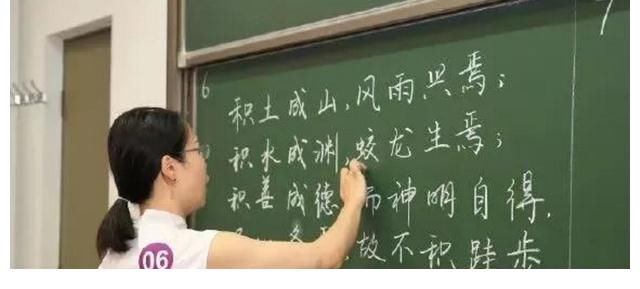 7
6
积土成山,风雨兴焉;
积水成渊,蛟龙生焉;
积善成德,而神明自得,
故不积跬步
06